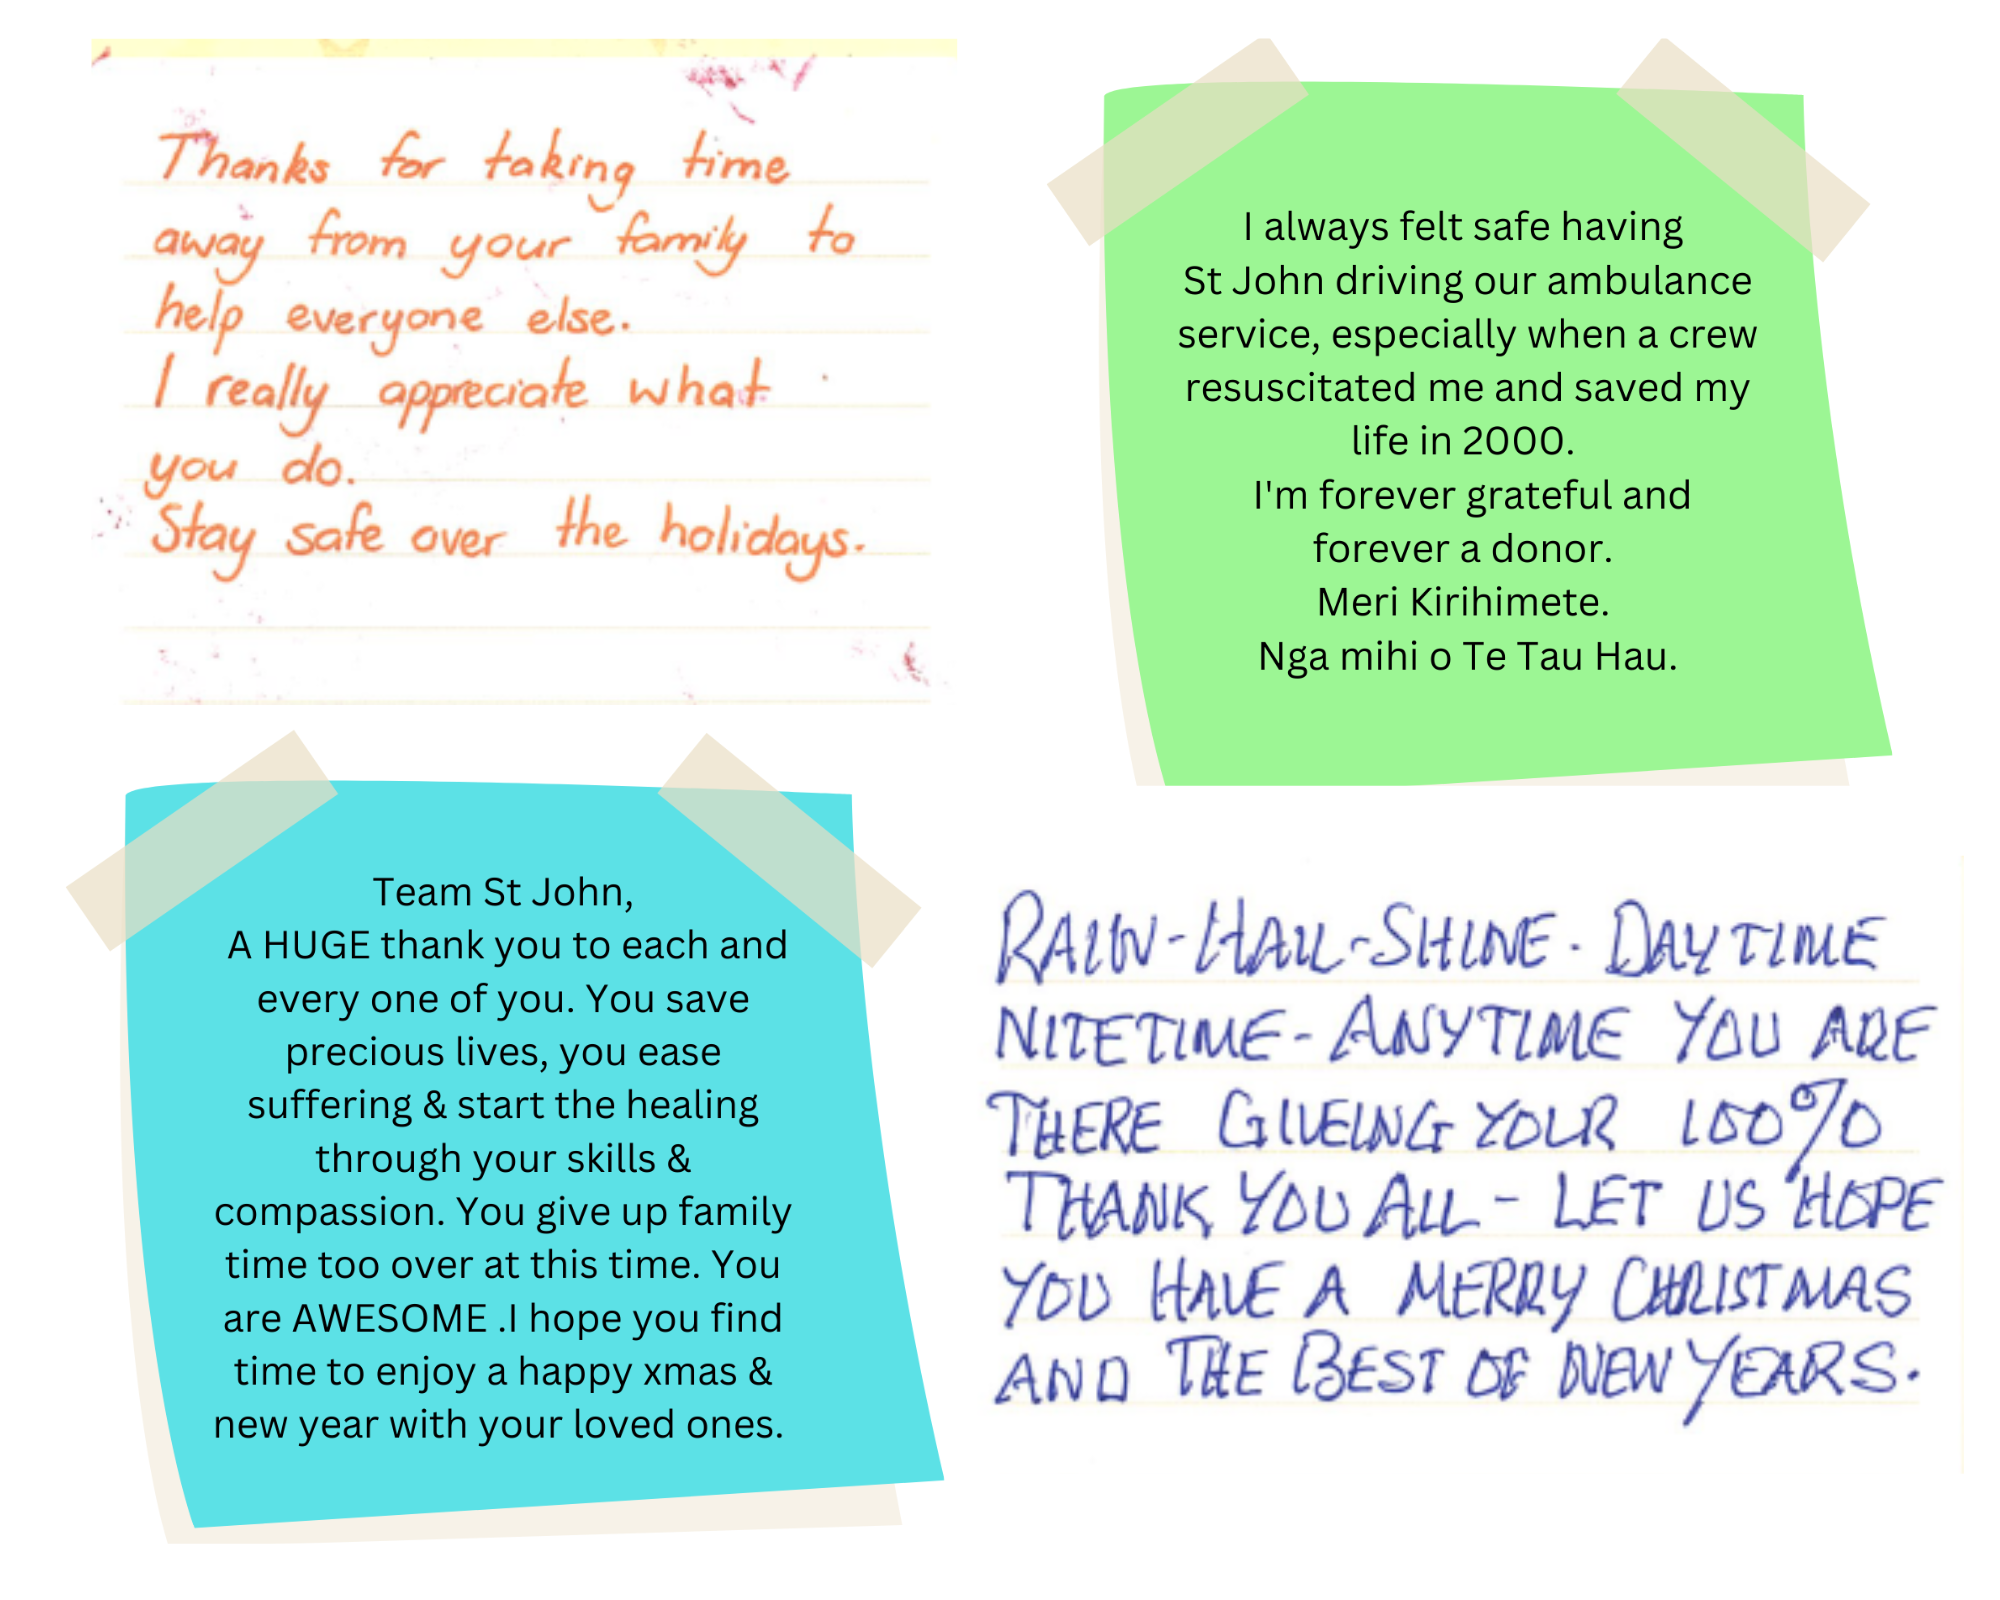 Thanks for taking time
away from your family to
help everyone else.
I really appreciate what
you do.
Stay safe over the holidays.
I always felt safe having
St John driving our ambulance
service, especially when a crew
resuscitated me and saved my
life in 2000.
I'm forever grateful and
forever a donor.
Meri Kirihimete.
Nga mihi o Te Tau Hau.
Team St John,
A HUGE thank you to each and
every one of you. You save
precious lives, you ease
suffering & start the healing
through your skills &
compassion. You give up family
time too over at this time. You
are AWESOME .I hope you find
time to enjoy a happy xmas &
new year with your loved ones.
RAIN-HAIL-SHINE. DAYTIME
NITETIME - ANYTIME YOU ARE
THERE GIVEING YOUR 100%
THANK YOU ALL - LET US HOPE
YOU HAVE A MERRY CHRISTMAS
AND THE BEST OF NEW YEARS.